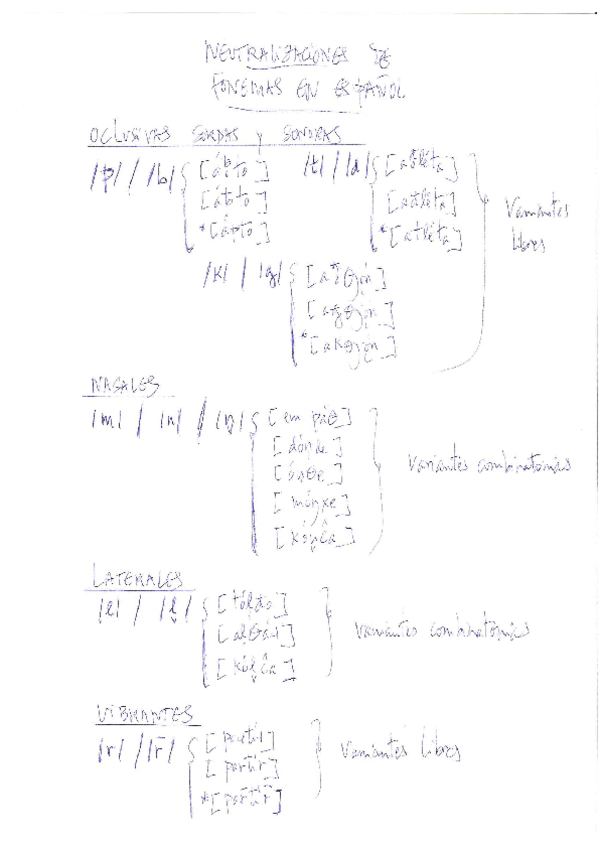 NEUTRALIZACIONES DE
FONEMAS EN ESPAÑOL
OCLUSIVAS SORDAS y SONORAS
/p/ / /b/ /t/ / /d/
[ábto] [adléta]
*[ápto] *[atléta]
Variantes
libres
/k/ / /g/
*[akθjón]
NASALES
/m/ / /n/ / /ɲ/ [em páθ]
[dónde]
[ónθe]
[mónxe]
[kónĉa]
Variantes combinatorias
LATERALES
/l/ / /ʎ/ [tóldo]
[kólĉa]
Variantes combinatorias
VIBRANTES
/r/ / /r̄/
[partir]
*[partir̄]
Variantes libres